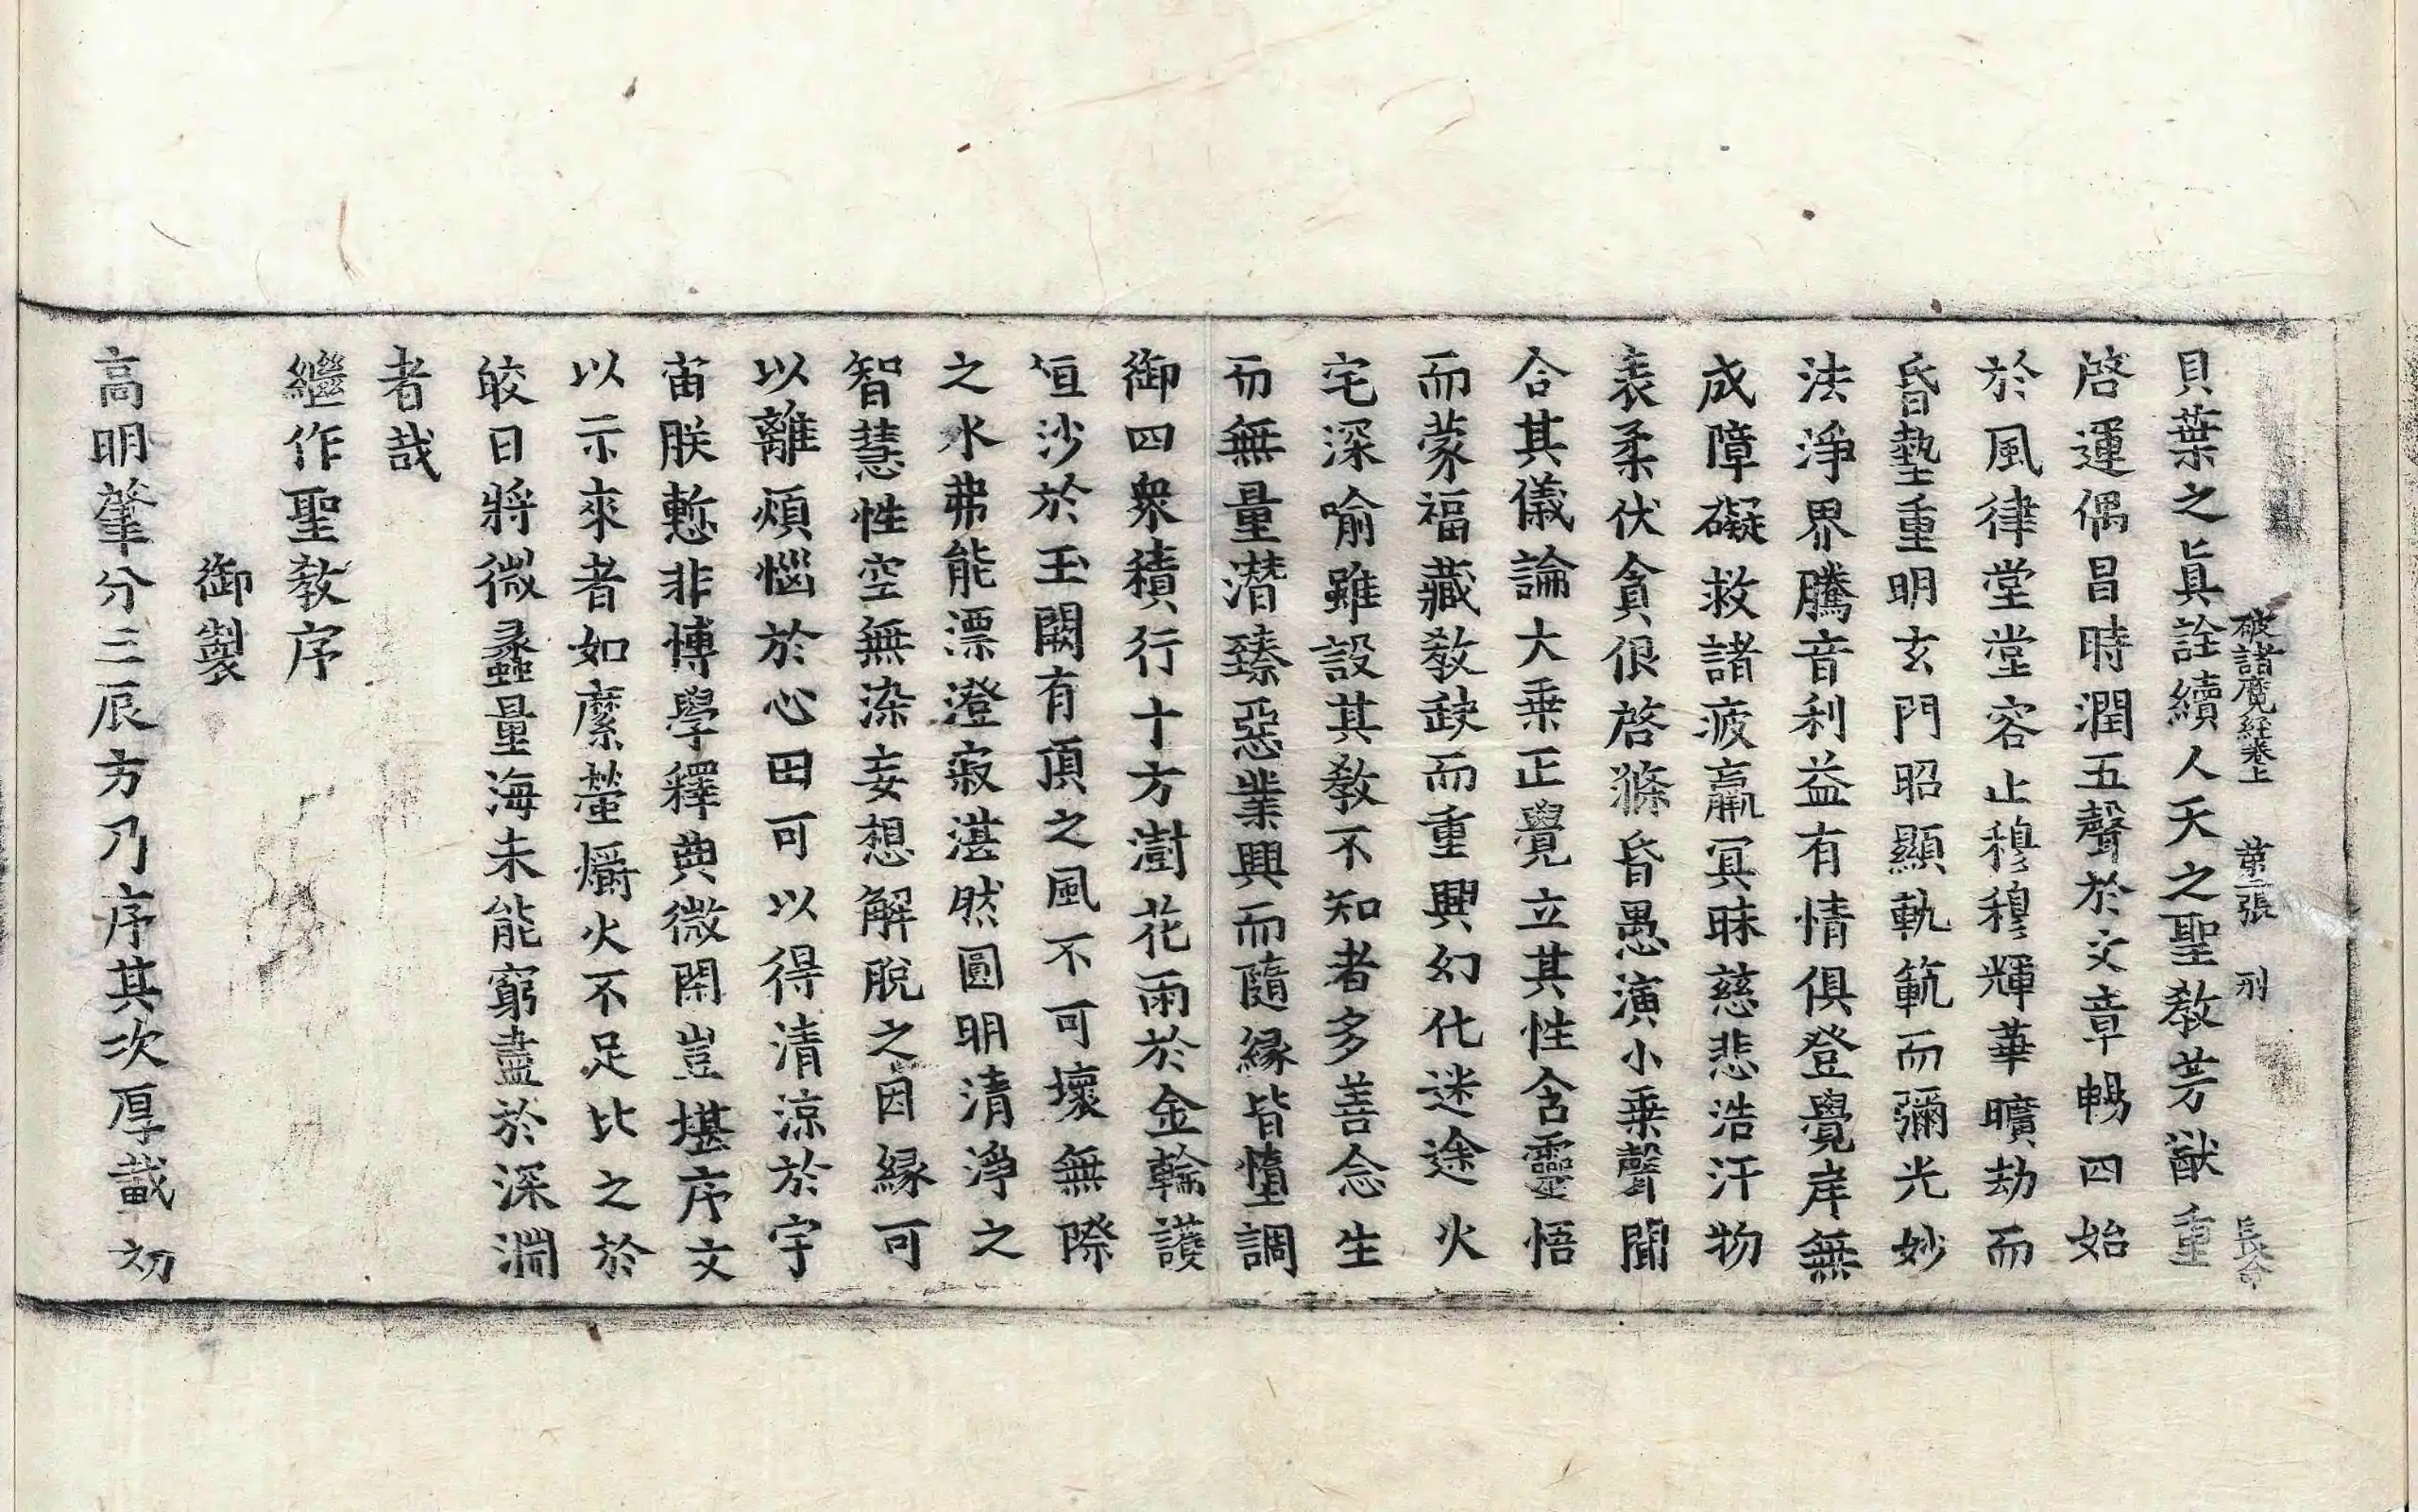 破諸魔經卷上 第二張 刑 長命
貝葉之眞詮續人天之聖教芳猷重
啓運偶昌時潤五聲於文章暢四始
於風律堂堂容止穆穆輝華曠劫而
昏蟄重明玄門昭顯軌範而彌光妙
法淨界騰音利益有情俱登覺岸無
成障礙救諸疲羸冥昧慈悲浩汗物
表柔伏貪佷啓滌昏愚演小乗聲聞
合其儀論大乗正覺立其性含靈悟
而蒙福藏教缺而重興幻化迷途火
宅深喻雖設其教不知者多善念生
而無量潜臻惡業興而隨緣皆墮調
御四衆積行十方澍花雨於金輪護
恒沙於玉闕有頂之風不可壞無際
之水弗能漂澄寂湛然圓明清淨之
智慧性空無染妄想解脫之因緣可
以離煩惱於心田可以得清涼於宇
宙朕慙非博學釋典微閑豈堪序文
以示來者如縻螢爝火不足比之於
皎日將微蠡量海未能窮盡於深淵
者哉
繼作聖教序
御製
高明肇分三辰方乃序其次厚載初